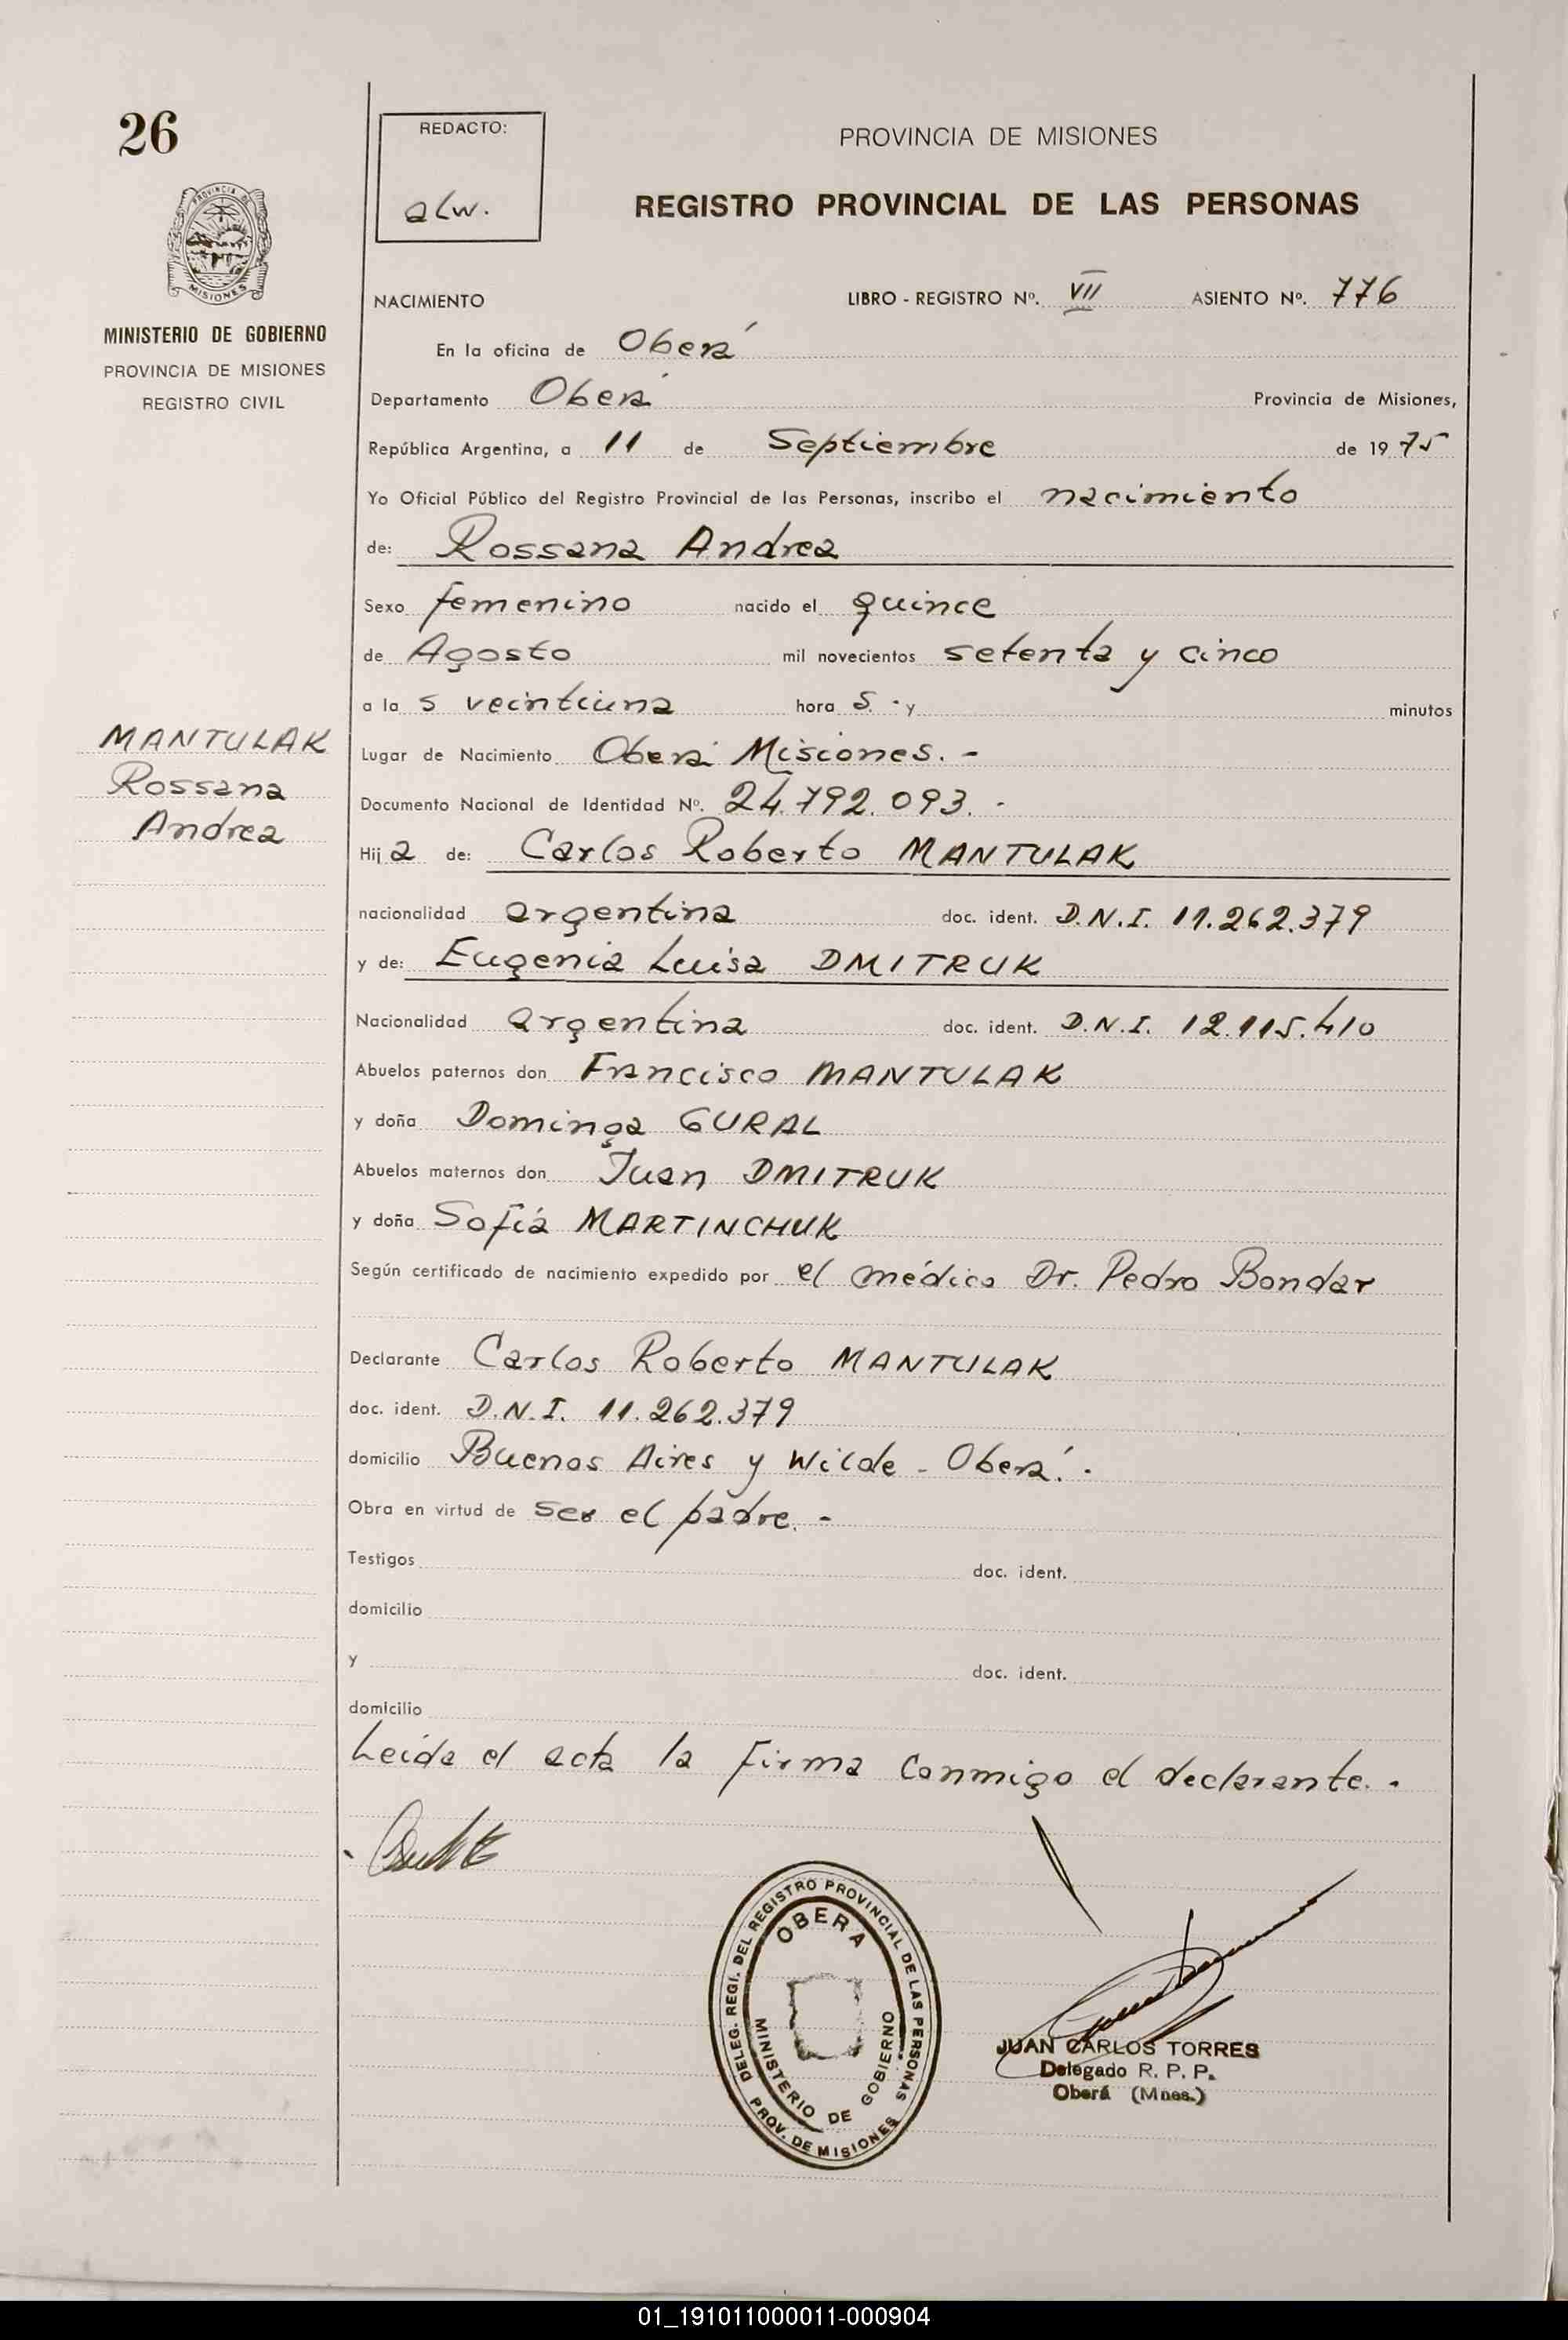 26
REDACTO:
alw.
PROVINCIA DE MISIONES
REGISTRO PROVINCIAL DE LAS PERSONAS
PROVINCIA DE
MISIONES
MINISTERIO DE GOBIERNO
PROVINCIA DE MISIONES
REGISTRO CIVIL
NACIMIENTO LIBRO - REGISTRO Nº. VII ASIENTO Nº. 776
En la oficina de Oberá
Departamento Oberá Provincia de Misiones,
República Argentina, a 11 de Septiembre de 1975
Yo Oficial Público del Registro Provincial de las Personas, inscribo el nacimiento
de: Rossana Andrea
Sexo femenino nacido el quince
de Agosto mil novecientos setenta y cinco
a la s veintiuna hora s. y minutos
MANTULAK
Rossana
Andrea
Lugar de Nacimiento Oberá Misiones. -
Documento Nacional de Identidad Nº. 24.792.093. -
Hij a de: Carlos Roberto MANTULAK
nacionalidad argentina doc. ident. D.N.I. 11.262.379
y de: Eugenia Luisa DMITRUK
Nacionalidad argentina doc. ident. D.N.I. 12.115.410
Abuelos paternos don Francisco MANTULAK
y doña Dominga GURAL
Abuelos maternos don Juan DMITRUK
y doña Sofía MARTINCHUK
Según certificado de nacimiento expedido por el médico Dr. Pedro Bondar
Declarante Carlos Roberto MANTULAK
doc. ident. D.N.I. 11.262.379
domicilio Buenos Aires y Wilde - Oberá. -
Obra en virtud de ser el padre. -
Testigos doc. ident.
domicilio
y doc. ident.
domicilio
Leída el acta la firma conmigo el declarante. -
DELEG. REGI. DEL REGISTRO PROVINCIAL DE LAS PERSONAS
OBERA
MINISTERIO DE GOBIERNO
PROV. DE MISIONES
JUAN CARLOS TORRES
Delegado R. P. P.
Oberá (Mnes.)
01_191011000011-000904